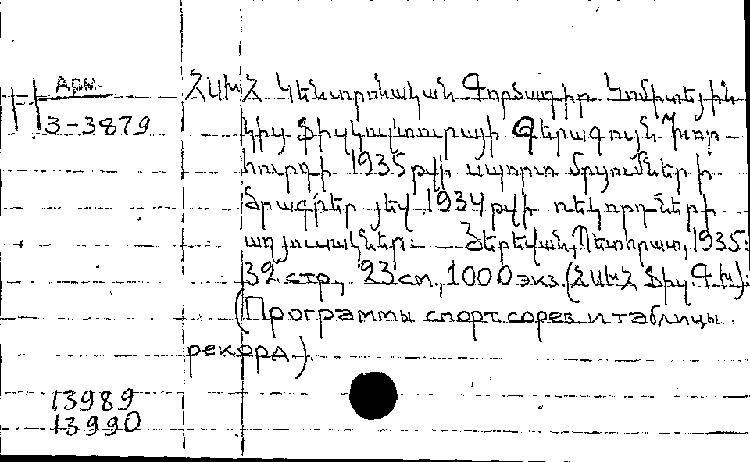 Арм.
3-3879
ՀԱԽՀ Կենտրոնական Գործադիր Կոմիտեյին
կից Ֆիզկուլտուրայի Գերագույն Խոր-
հուրդի 1935 թվի սպորտ մրցումների
ծրագրեր յեվ 1934 թվի ռեկորդների
աղյուսակներ: — Յերեվան, Պետհրատ, 1935:
32 стр., 23 см, 1000 экз. (ՀԱԽՀ Ֆիզ. Գ.Խ.):
(Программы спорт. сорев. и таблицы
рекорд.)
13989
13990